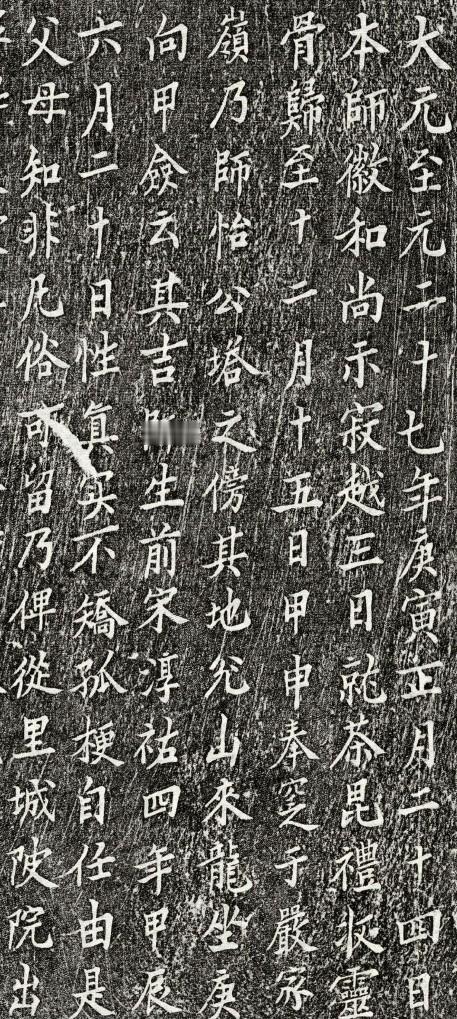 大元至元二十七年庚寅正月二十四日
本師徽和尚示寂越三日就茶昆禮收靈
骨歸至十二月十五日甲申奉窆于嚴家
嶺乃師怡公塔之傍其地兊山來龍坐庚
向甲僉云其吉生前宋淳祐四年甲辰
六月二十日性真实不矯孤梗自任由是
父母知非凡俗可留乃俾從里城陂院出